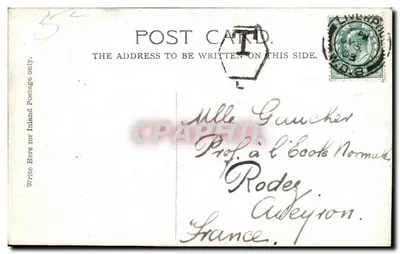 5c
POST CARD.
T
LIVERPOOL
THE ADDRESS TO BE WRITTEN ON THIS SIDE.
L
Write Here for Inland Postage only.
CPAPHIL
Mlle Gaucher
Prof. à l'Ecole Normale
Rodez
Aveyron.
France.